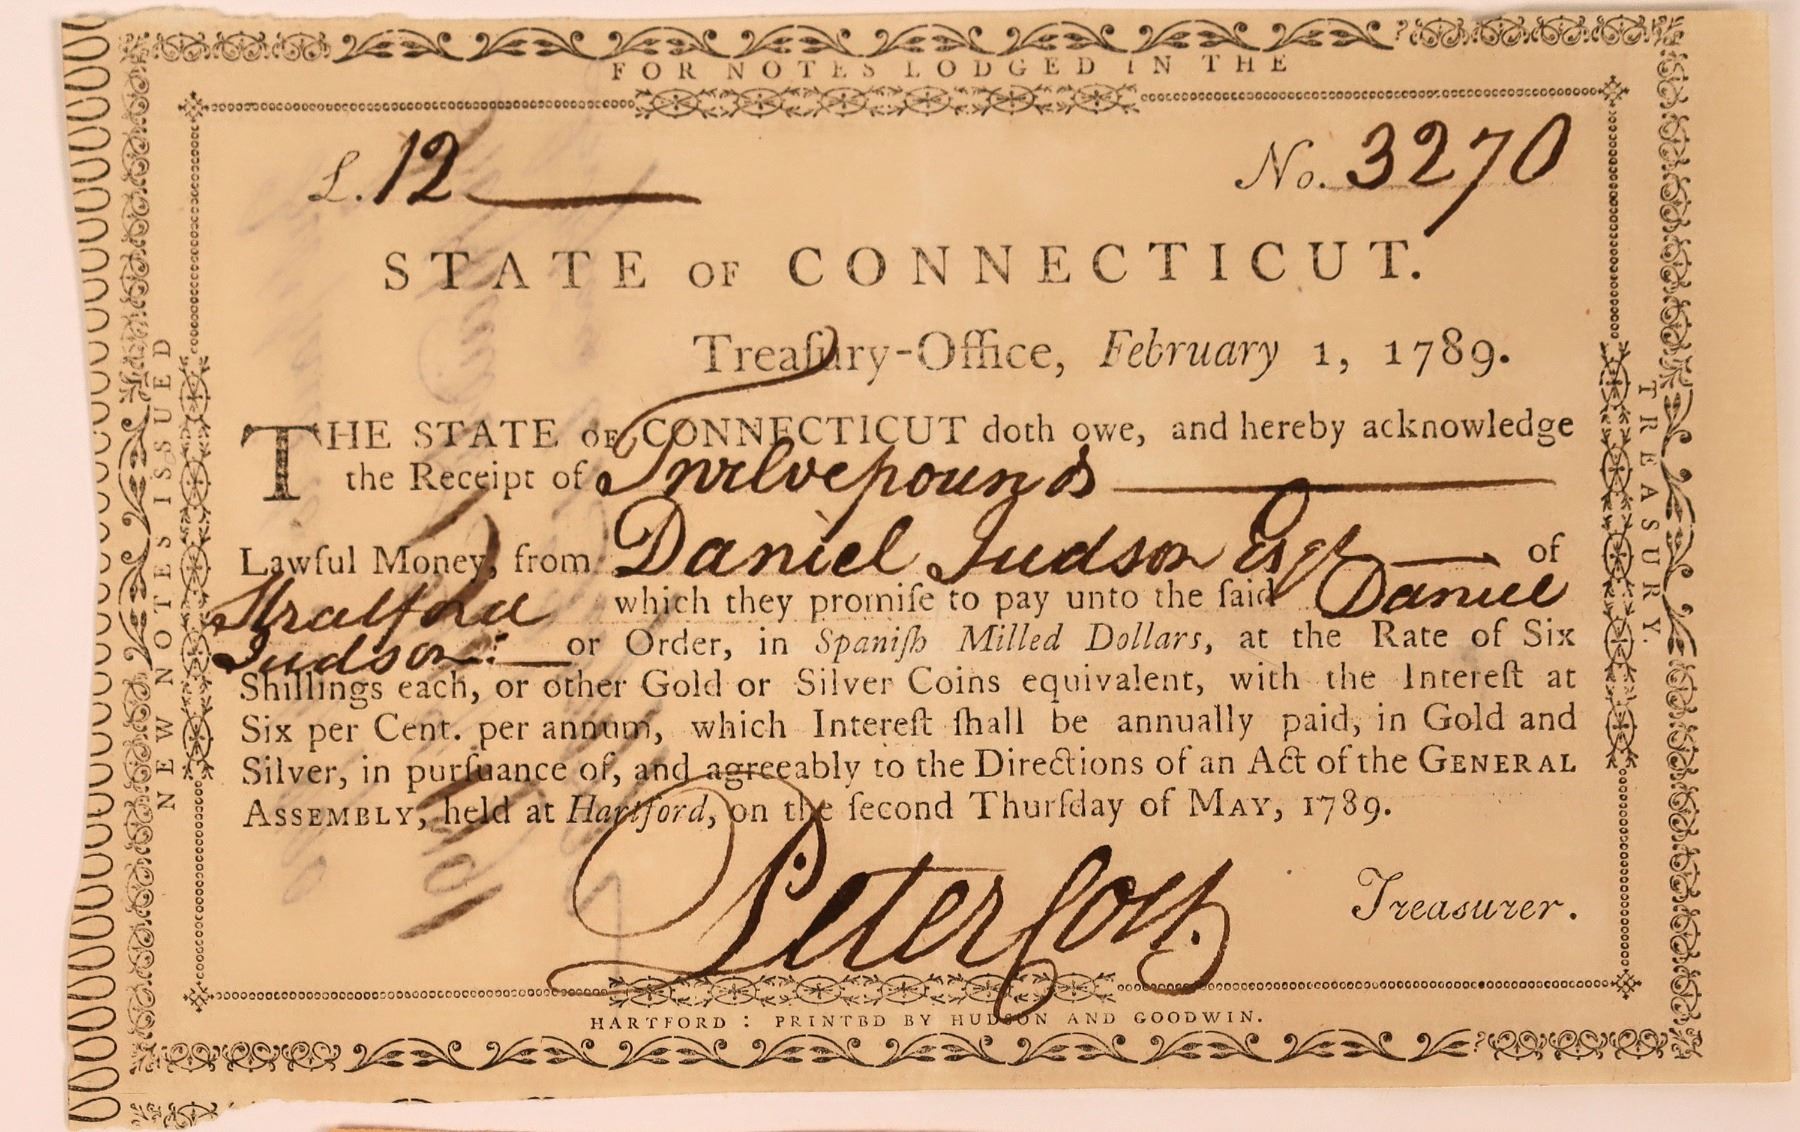 NEW NOTES ISSUED
FOR NOTES LODGED IN THE
TREASURY.
£. 12 No. 3270
STATE OF CONNECTICUT.
Treaſury-Office, February 1, 1789.
THE STATE OF CONNECTICUT doth owe, and hereby acknowledge
the Receipt of Twelve pounds
Lawful Money, from Daniel Judson Esqr of
Stratford which they promiſe to pay unto the ſaid Daniel
Judson or Order, in Spaniſh Milled Dollars, at the Rate of Six
Shillings each, or other Gold or Silver Coins equivalent, with the Intereſt at
Six per Cent. per annum, which Intereſt ſhall be annually paid, in Gold and
Silver, in purſuance of, and agreeably to the Directions of an Act of the GENERAL
ASSEMBLY, held at Hartford, on the ſecond Thurſday of MAY, 1789.
Peter Colt. Treasurer.
HARTFORD: PRINTED BY HUDSON AND GOODWIN.